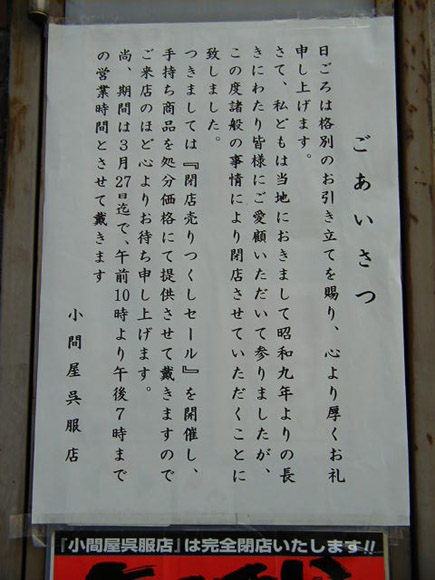 ごあいさつ
日ごろは格別のお引き立てを賜り、心より厚くお礼
申し上げます。
さて、私どもは当地におきまして昭和九年よりの長
きにわたり皆様にご愛顧いただいて参りましたが、
この度諸般の事情により閉店させていただくことに
致しました。
つきましては『閉店売りつくしセール』を開催し、
手持ち商品を処分価格にて提供させて戴きますので
ご来店のほど心よりお待ち申し上げます。
尚、期間は3月27日迄で、午前10時より午後7時まで
の営業時間とさせて戴きます
小間屋呉服店
『小間屋呉服店』は完全閉店いたします!!